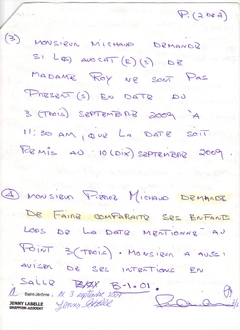 P. (2 de 2)
(3) MONSIEUR MICHAUD DEMANDE
SI LES AVOCAT(E)(S) DE
MADAME ROY NE SONT PAS
PRÉSENT(S) EN DATE DU
3 (TROIS) SEPTEMBRE 2009 À
11:30 AM, QUE LA DATE SOIT
REMIS AU 10 (DIX) SEPTEMBRE 2009.
(4) MONSIEUR PIERRE MICHAUD DEMANDE
DE FAIRE COMPARAITRE SES ENFANTS
LORS DE LA DATE MENTIONNÉ AU
POINT 3 (TROIS). MONSIEUR A AUSSI
AVISER DE SES INTENTIONS EN
SALLE B-1.01.
Saint-Jérôme, le 3 septembre 2009
Jenny Labelle
JENNY LABELLE
GREFFIÈRE ADJOINT